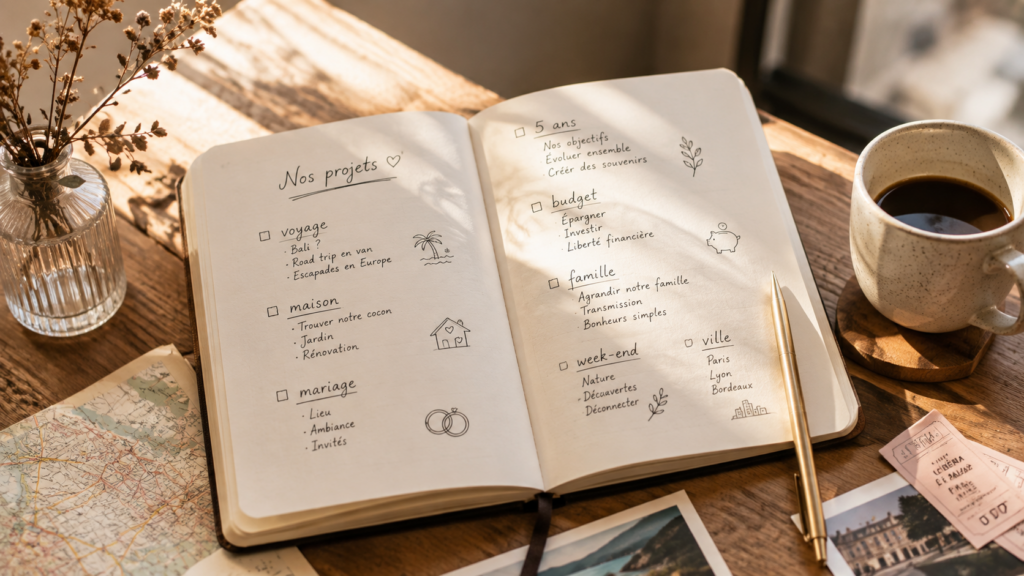 Nos projets
voyage
Bali ?
Road trip en van
Escapades en Europe
maison
Trouver notre cocon
Jardin
Rénovation
mariage
Lieu
Ambiance
Invités
5 ans
Nos objectifs
Évoluer ensemble
Créer des souvenirs
budget
Épargner
Investir
Liberté financière
famille
Agrandir notre famille
Transmission
Bonheurs simples
week-end
Nature
Découvertes
Déconnecter
ville
Paris
Lyon
Bordeaux